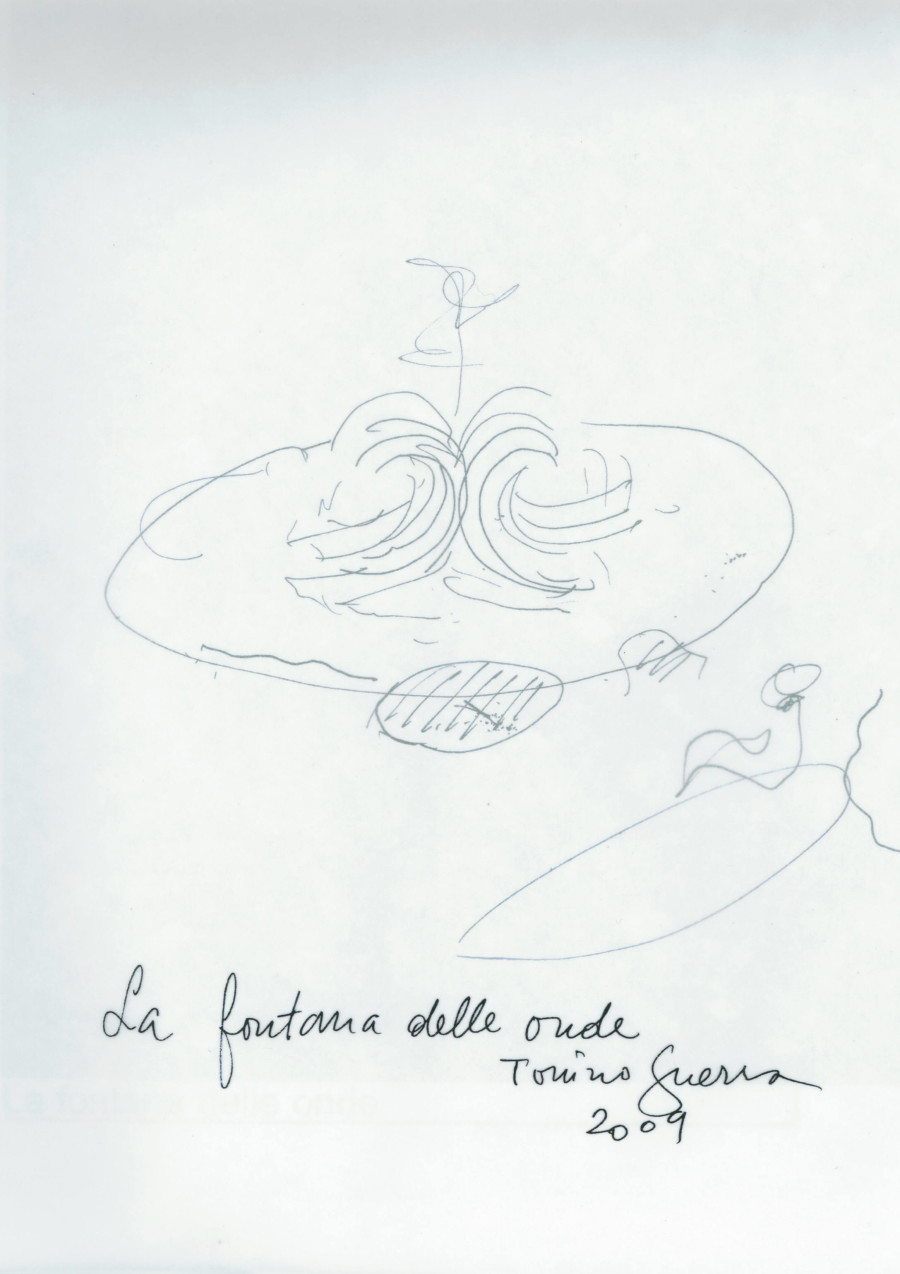 La fontana delle onde
Tonino Guerra
2009
La fontana delle onde